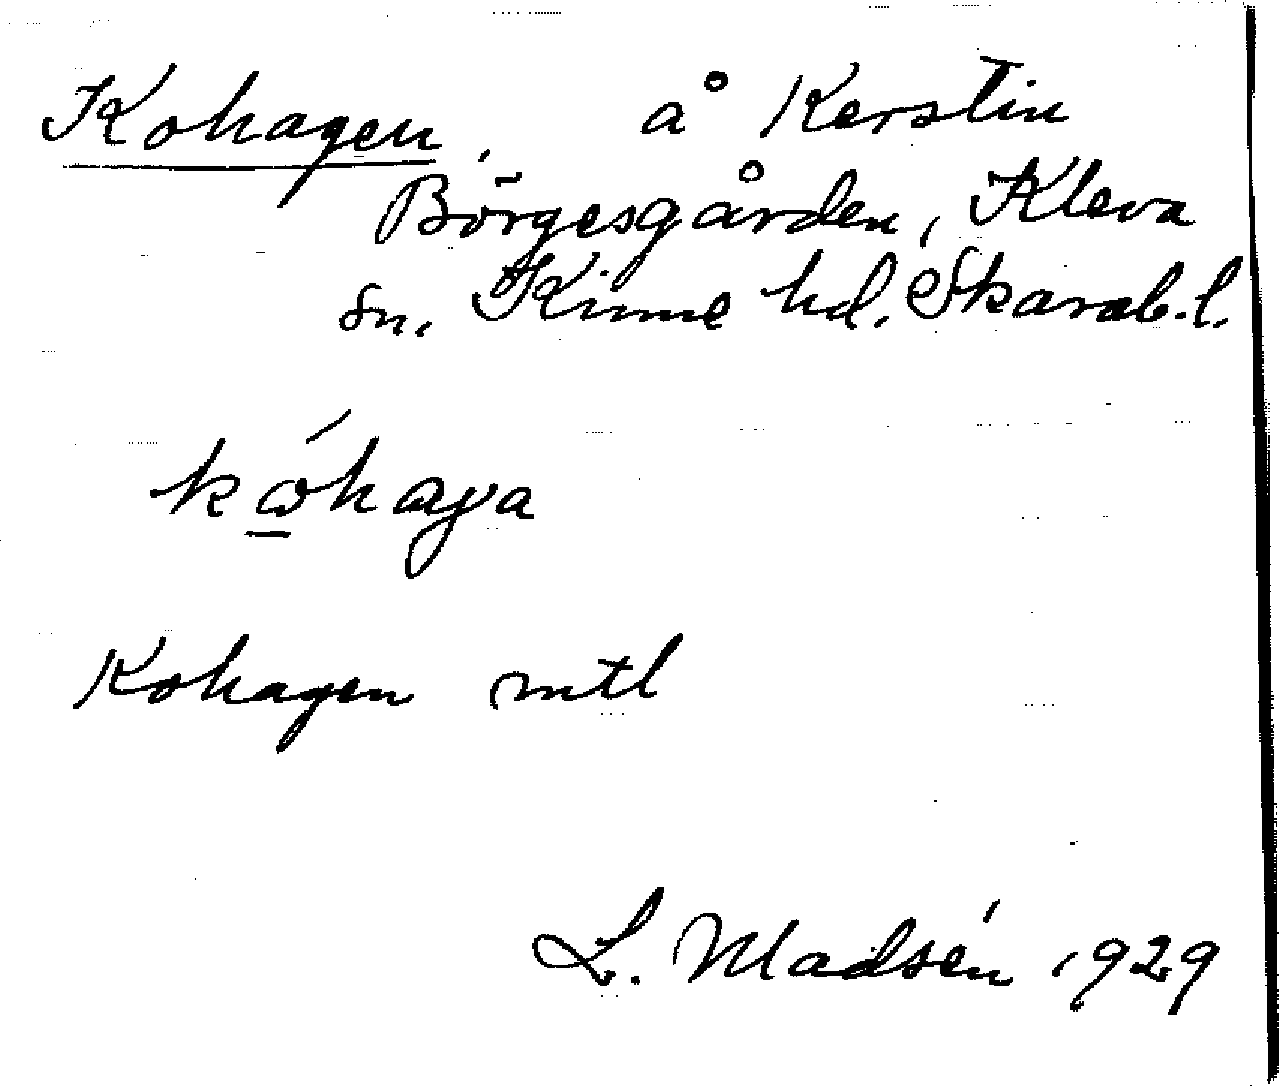 Kohagen, å Kerstin
Börgesgården, Kleva
sn. Kinne hd. Skarab.l.
kώ̲haga
Kohagen mtl
L. Madsén 1929